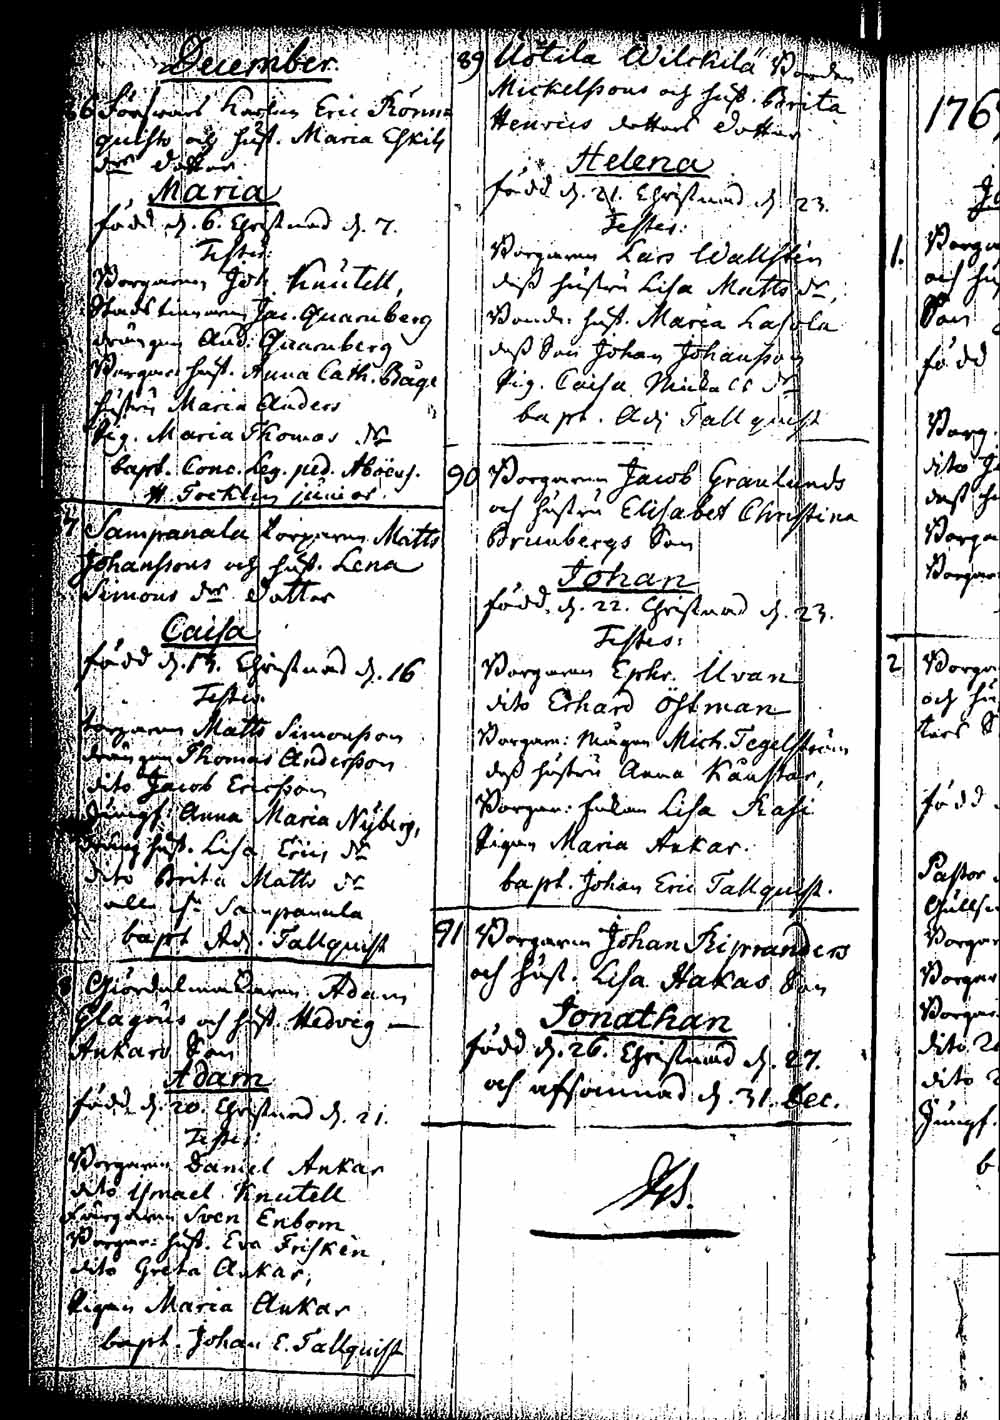 December
86 Förswars Karlen Eric Rönn=
quists och hust. Maria Eskils
dr dotter
Maria
född d. 6. Christnad d. 7.
Testes:
Borgaren Joh. Knutell,
Jac. Quarnberg
drängen And. Quarnberg
Borgar: hust. Anna Cath. Båge
hustru Maria Anders
Pig. Maria Thomas dr
bapt. Conc. Leg. ped. Aboens.
H. Forklin junior.
7 Sampanala torparen Matts
Johanssons och hust. Lena
Simons dr dotter
Caisa
född d. 15. Christnad d. 16
Testes:
torparen Matts Simonsson
drängen Thomas Andersson
dito Jacob Ericsson
Jungf. Anna Maria Nyberg,
hust. Lisa Erics dr
dito Brita Matts dr
alla fr. Sampanala
bapt. Adj. Tallquist
8 Giördelmakaren Adam
Glagöus och hust. Hedvig —
Ankars Son
Adam
född d. 20. Christnad d. 21.
Testes:
Borgaren Daniel Ankar
dito Ismael Knutell
Färgaren Sven Enbom
Borgar: hust. Eva Friskén
dito Greta Ankar,
Pigan Maria Ankar
bapt. Johan E. Tallquist
89 Uotila Wilckilä Bonden
Mickelssons och hust. Brita
Henrics dotters dotter
Helena
född d. 21. Christnad d. 23.
Testes:
Borgaren Lars Wallstén
dess hustru Lisa Matts dr,
Bond: hust. Maria Lasola
dess Son Johan Johansson
Pig. Caisa Michels dr
bapt. Adj Tallquist
90 Borgaren Jacob Granlunds
och hustru Elisabet Christina
Brunbergs Son
Johan
född d. 22. Christnad d. 23.
Testes:
Borgaren Ephr. Uvan
dito Erhard Östman
Borgare: Mågen Mich. Tegelström
dess hustru Anna
Borgar: Enkan Lisa Rasi
Pigan Maria Ankar.
bapt. Johan Eric Tallquist.
91 Borgaren Johan Kiprianders
och hust. Lisa Hakas Son
Jonathan
född d. 26. Christnad d. 27.
och afsomnad d. 31. Dec.
176
1. Borga
och hus
Son
född
Borg.
dito J
dess hu
Borga
Borgar
2 Borga
och hu
ters S
född
Pastor
Gullse
Borgar
Borgar
Borgar
dito
dito
Jungf.
b